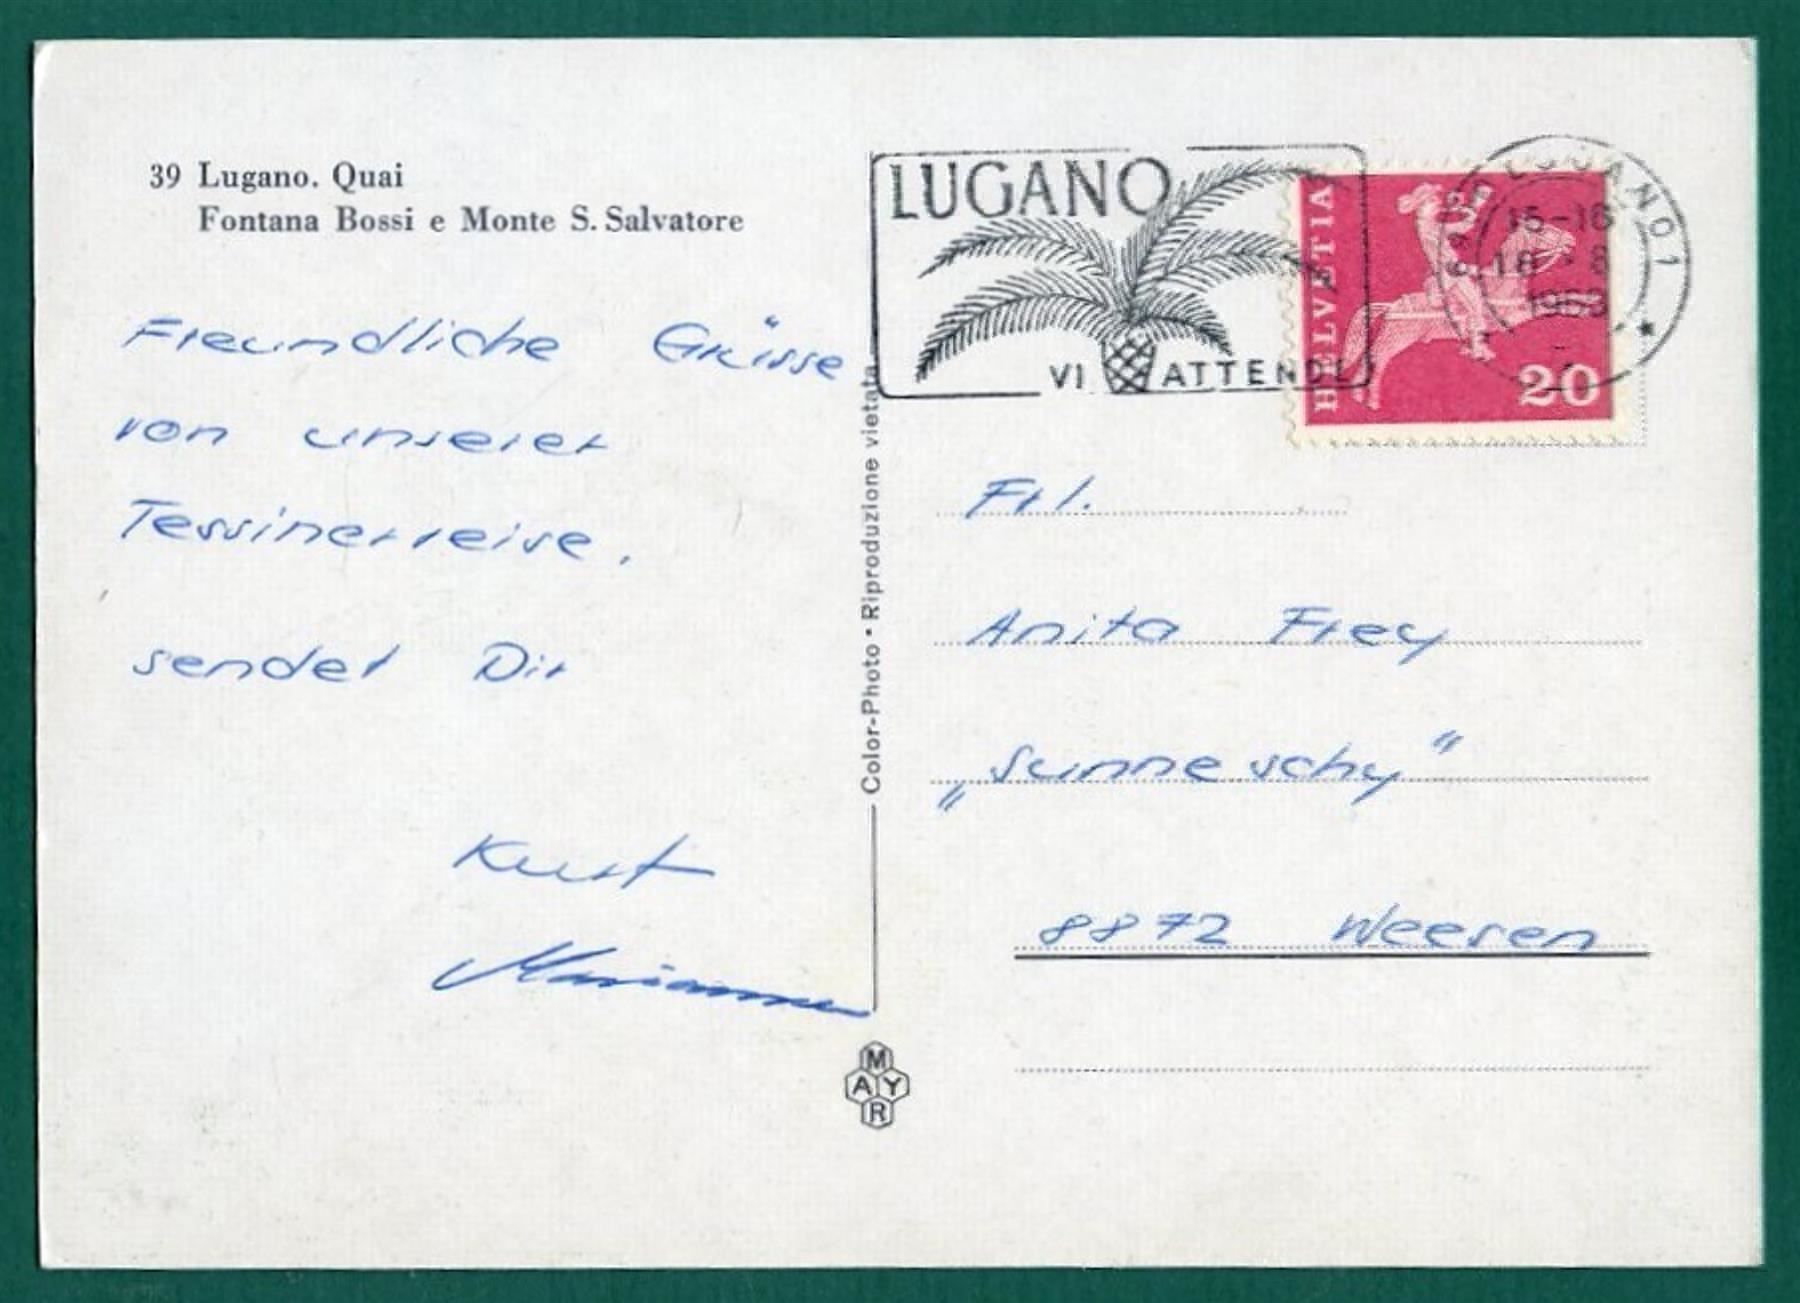 39 Lugano. Quai
Fontana Bossi e Monte S. Salvatore
Freundliche Grüsse
von unserer
Tessinerreise.
sendet Dir
Kurt
Marianne
Color-Photo • Riproduzione vietata
MAYR
LUGANO
VI ATTENDE
HELVETIA
20
LUGANO 1
15-16
Frl.
Anita Frey
„Sunneschy“
8872 Weesen